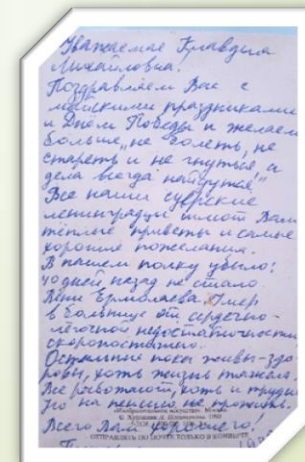 Уважаемая Клавдия
Михайловна.
Поздравляем Вас с
майскими праздниками
и Днём Победы и желаем
больше „не болеть, не
стареть и не гнуться, а
дела всегда найдутся!"
Все наши суерские
ленинградцы шлют Вам
тёплые приветы и самые
хорошие пожелания.
В нашем полку убыло:
40 дней назад не стало
Вени Ермолаева. Умер
в больнице от сердечно-
лёгочной недостаточности
скоропостижно.
Остальные пока живы-здо
ровы, хоть жизнь тяжела.
Все работают, хоть и трудно
но на пенсию не прожить.
«Изобразительное искусство». Москва
Всего Вам хорошего!
ОТПРАВЛЯТЬ ПО ПОЧТЕ ТОЛЬКО В КОНВЕРТЕ